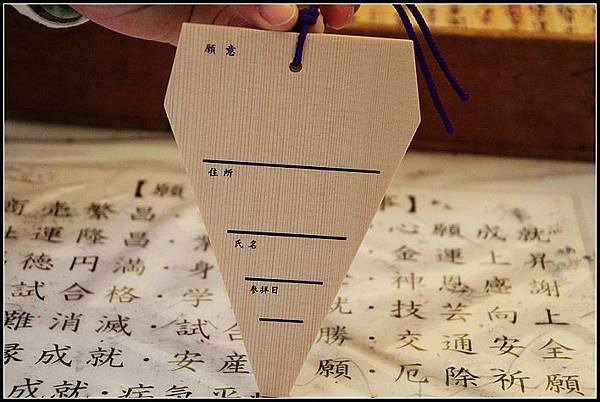 願意
住所
氏名
参拝日
【願
商売繁昌・
社運隆昌・
徳円満・身
試合格・学
難消滅・試合
縁成就・安産
成就・病気平
心願成就
金運上昇
神恩感謝
・技芸向上
勝・交通安全
願・厄除祈願